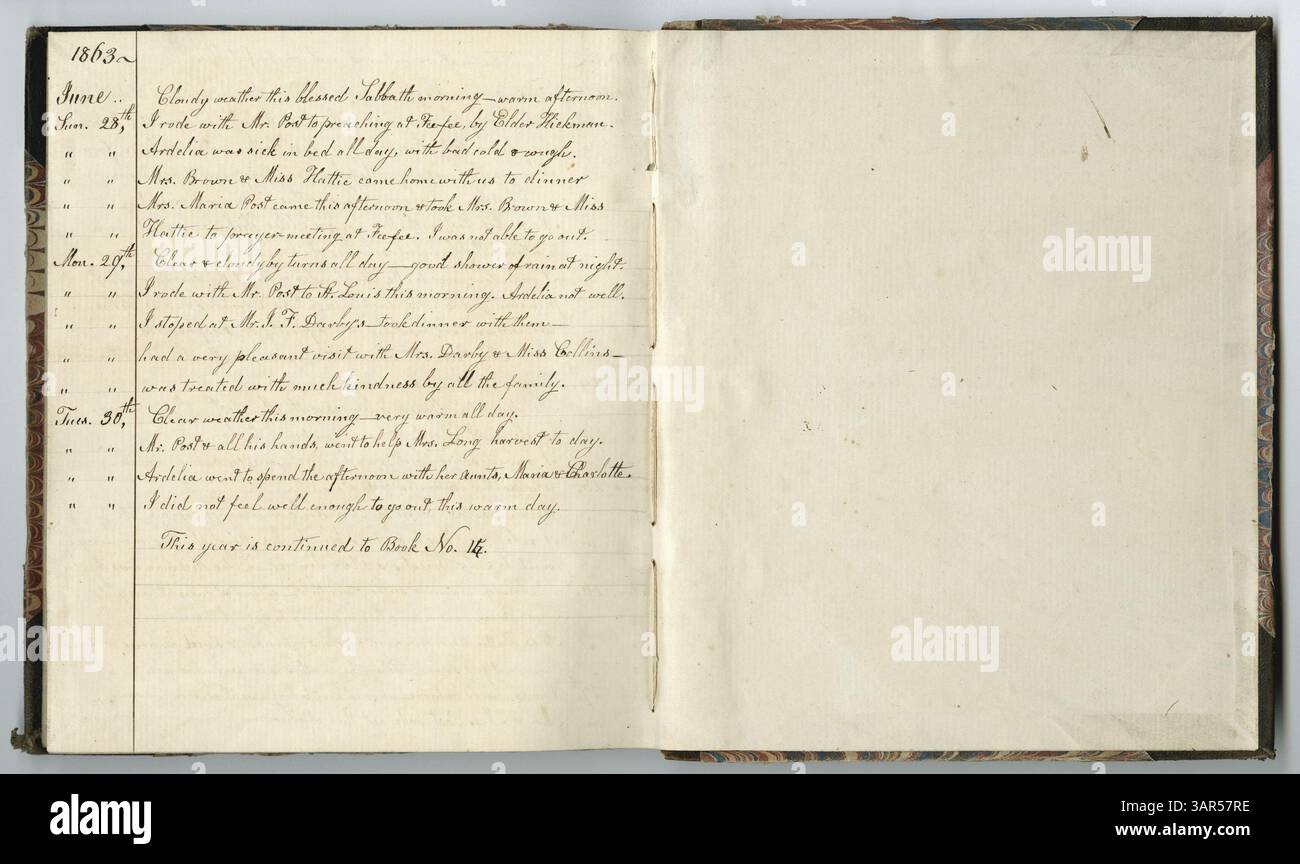 1863
June .. Cloudy weather this blessed Sabbath morning — warm afternoon.
Sun. 28,th I rode with Mr. Post to preaching at Feefee, by Elder Hickman.
" " Ardelia was sick in bed all day, with bad cold & cough.
" " Mrs. Brown & Miss Hattie came home with us to dinner
" " Mrs. Maria Post came this afternoon & took Mrs. Brown & Miss
" " Hattie to prayer-meeting at Feefee. I was not able to go out.
Mon. 29,th Clear & cloudy by turns all day — good shower of rain at night.
" " I rode with Mr. Post to St. Louis this morning. Ardelia not well.
" " I stoped at Mr. J. F. Darby's — took dinner with them —
" " had a very pleasant visit with Mrs. Darby & Miss Collins —
" " was treated with much kindness by all the family.
Tues. 30,th Clear weather this morning — very warm all day.
" " Mr. Post & all his hands, went to help Mrs. Long harvest to day.
" " Ardelia went to spend the afternoon with her aunts, Maria & Charlotte.
" " I did not feel well enough to go out, this warm day.
This year is continued to Book No.
alamy
alamy
alamy
alamy
alamy
alamy
Image ID: 3AR57RE
www.alamy.com